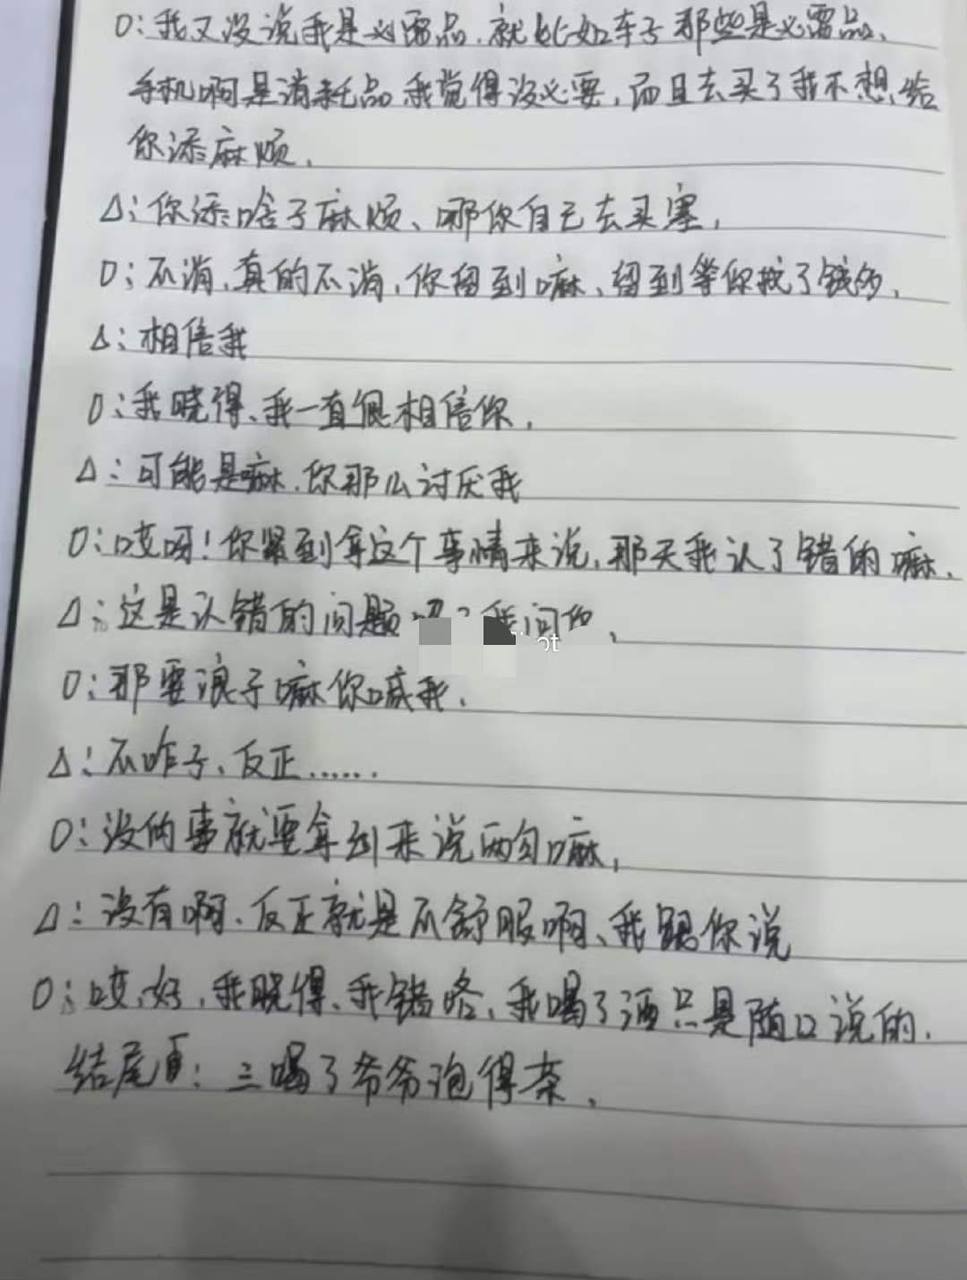 O：我又没说我是必需品，就比如车子那些是必需品、
手机啊是消耗品，我觉得没必要，而且去买了我不想给
你添麻烦，
△：你添啥子麻烦、哪你自己去买塞，
O：不消，真的不消，你留到嘛、留到等你找了钱的，
△：相信我
O：我晓得、我一直很相信你，
△：可能是嘛，你那么讨厌我
O：哎呀！你紧到拿这个事情来说，那天我认了错的嘛，
△：这是认错的问题 我问你，
O：那要浪子嘛你喊我，
△：不咋子、反正……
O：没的事就要拿到来说两句嘛，
△：没有啊、反正就是不舒服啊、我跟你说
O：哎，好，我晓得、我错咯，我喝了酒只是随口说的，
结尾 ：三喝了爷爷泡得茶，